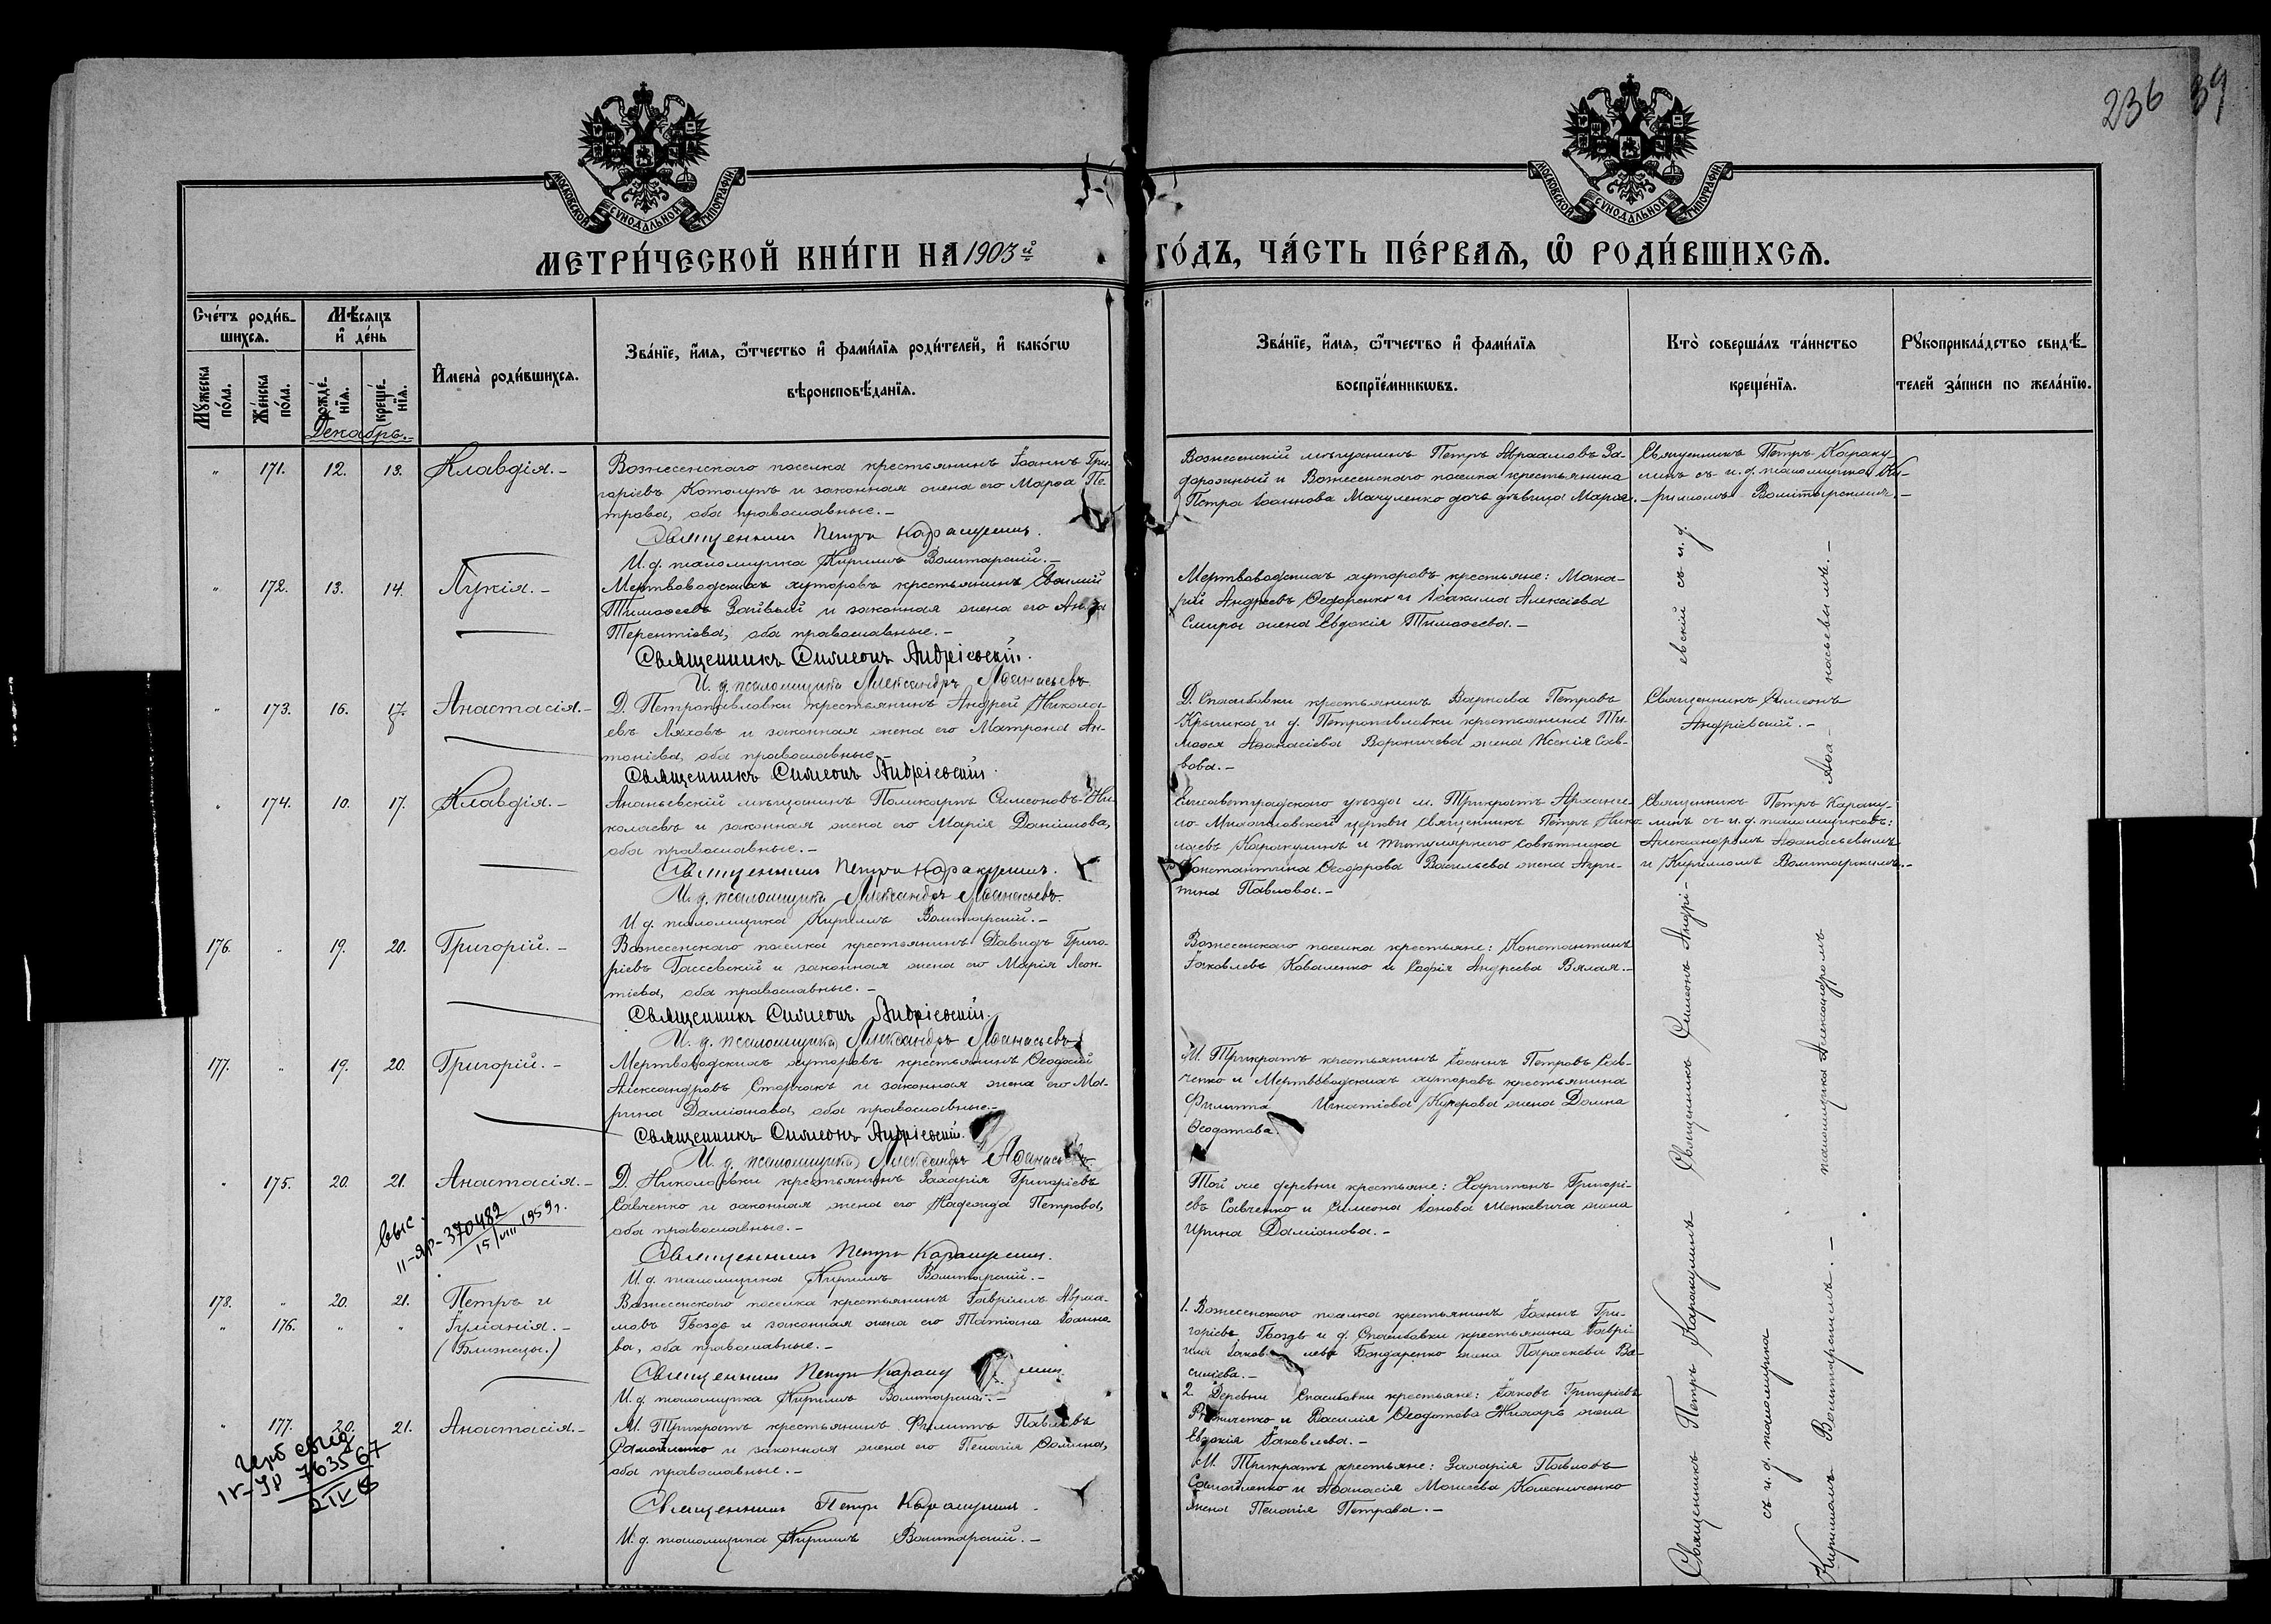 236 39
МОСКОВСКОЙ СУНОДАЛЬНОЙ ТИПОГРАФІИ
МОСКОВСКОЙ СУНОДАЛЬНОЙ ТИПОГРАФІИ
МЕТРИ́ЧЕСКОЙ КНИ́ГИ НА 1903й
ГО́ДЪ, ЧА́СТЬ ПЕ́РВАЯ, Ѽ РОДИ́ВШИХСЯ.
Сче́тъ роди́в-
шихся.
Мѣ́сяцъ
и҆ де́нь
Му́жеска по́ла.
Же́нска по́ла.
рожде́-нїя.
креще́-нїя.
Декабрь.-
И҆мена̀ роди́вшихся.
Зва́нїе, и҆́мя, ѻ҆́тчество и҆ фами́лїя роди́телей, и҆ како́гѡ
вѣроисповѣ́данїя.
Зва́нїе, и҆́мя, ѻ҆́тчество и҆ фами́лїя
воспрїе́мникѡвъ.
Кто̀ соверша́лъ та́инство
креще́нїя.
Рукоприкла́дство свидѣ́-
телей за́писи по жела́нїю.
" 171. 12. 13. Клавдія.-
Вознесенскаго поселка крестьянинъ Іоаннъ Гри-
горіевъ Котолупъ и законная жена его Марѳа Пе-
трова, оба православные.-
Священникъ Петръ Каракулинъ.
И. д. псаломщика Кириллъ Волитарскій.-
Вознесенскій мѣщанинъ Петръ Авраамовъ За-
дорожный и Вознесенскаго поселка крестьянина
Петра Іоаннова Мачуленко дочь дѣвица Марѳа.-
Священникъ Петръ Караку-
линъ съ и. д. псаломщика Ки-
рилломъ Волитарскимъ.-
" 172. 13. 14. Лукія.-
Мертвоводскихъ хуторовъ крестьянинъ Василій
Тимоѳеевъ Зайвый и законная жена его Анна
Терентіева, оба православные.-
Священникъ Симеонъ Андріевскій.
И. д. псаломщика Александръ Аѳанасьевъ.
Мертвоводскихъ хуторовъ крестьяне: Мака-
рій Андреевъ Ѳедоренко и Іоакима Алексіева
Смиры жена Евдокія Тимоѳеева.-
" 173. 16. 17. Анастасія.-
Д. Петропавловки крестьянинъ Андрей Никола-
евъ Ляховъ и законная жена его Матрона Ан-
тоніева, оба православные.-
Священникъ Симеонъ Андріевскій.
Д. Спасибовки крестьянинъ Варнава Петровъ
Крышка и д. Петропавловки крестьянина Ти-
моѳея Аѳанасіева Вороничева жена Ксенія Сав-
вова.-
Священникъ Симеонъ
Андріевскій.-
" 174. 10. 17. Клавдія.-
Ананьевскій мѣщанинъ Поликарпъ Симеоновъ Ни-
колаевъ и законная жена его Марія Даніилова,
оба православные.-
Священникъ Петръ Каракулинъ.
И. д. псаломщика Александръ Аѳанасьевъ.
И. д. псаломщика Кириллъ Волитарскій.-
Елисаветградскаго уѣзда м. Трикратъ Арханге-
ло-Михайловской церкви Священникъ Петръ Нико-
лаевъ Каракулинъ и титулярнаго совѣтника
Константина Ѳеодорова Васильева жена Агрип-
пина Павлова.-
Священникъ Петръ Караку-
линъ съ и. д. псаломщиковъ:
Александромъ Аѳанасьевымъ
и Кирилломъ Волитарскимъ.-
176. " 19. 20. Григорій.-
Вознесенскаго поселка крестьянинъ Давидъ Григо-
ріевъ Гассевскій и законная жена его Марія Леон-
тіева, оба православные.-
Священникъ Симеонъ Андріевскій.
И. д. псаломщика Александръ Аѳанасьевъ
Вознесенскаго поселка крестьяне: Константинъ
Іаковлевъ Коваленко и Софія Андреева Вялая.-
177. " 19. 20. Григорій.-
Мертвоводскихъ хуторовъ крестьянинъ Ѳеодосій
Александровъ Старчакъ и законная жена его Ма-
рина Даміанова, оба православные.-
Священникъ Симеонъ Андріевскій.
И. д. псаломщика Александръ Аѳанасьевъ.
М. Трикратъ крестьянинъ Іоаннъ Петровъ Сав-
ченко и Мертвоводскихъ хуторовъ крестьянина
Филиппа Игнатіева Кучерова жена Домна
Ѳеодотова.
" 175. 20. 21. Анастасія.-
выс.
II-ЯР-370482
15/VIII 1959 г.
Д. Николаевки крестьянинъ Захарія Григоріевъ
Савченко и законная жена его Надежда Петрова,
оба православные.-
Священникъ Петръ Каракулинъ.
И. д. псаломщика Кириллъ Волитарскій.-
Той же деревни крестьяне: Харитонъ Григорі-
евъ Савченко и Симеона Іонова Менкевича жена
Ирина Даміанова.-
178. " 20. 21. Петръ и
" 176. " " Іуліанія.-
(Близнецы.)
Вознесенскаго поселка крестьянинъ Гавріилъ Авраа-
мовъ Гвоздь и законная жена его Татіана Іоанно-
ва, оба православные.-
Священникъ Петръ Каракулинъ.
И. д. псаломщика Кириллъ Волитарскій.-
1. Вознесенскаго поселка крестьянинъ Іоаннъ Гри-
горіевъ Гвоздь и д. Спасибовки крестьянина Гаврі-
ила Іаковлева Бондаренко жена Параскева Ва-
силіева.-
2. Деревни Спасибовки крестьяне: Іаковъ Григоріевъ
и Василія Ѳеодотова Жихарь жена
Евдокія Іаковлева.-
" 177. 20. 21. Анастасія.-
герб свид
IV-УР 763567
2 IV
М. Трикратъ крестьянинъ Филиппъ Павловъ
Самойленко и законная жена его Пелагія Ѳомина,
оба православные.-
Священникъ Петръ Каракулинъ.
И. д. псаломщика Кириллъ Волитарскій.-
М. Трикратъ крестьяне: Захарія Павловъ
Самойленко и Аѳанасія Моисеева Колесниченко
жена Пелагія Петрова.-
Священникъ Петръ Каракулинъ Священникъ Симеонъ Андріевскій съ и. д.
съ и. д. псаломщика
Кирилломъ Волитарскимъ.- псаломщика Александромъ Аѳанасьевымъ.-